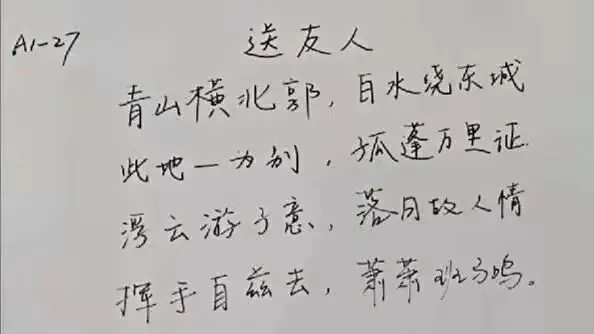 A1-27
送友人
青山横北郭,白水绕东城
此地一为别,孤蓬万里证.
浮云游子意,落日故人情
挥手自兹去,萧萧班马鸣。